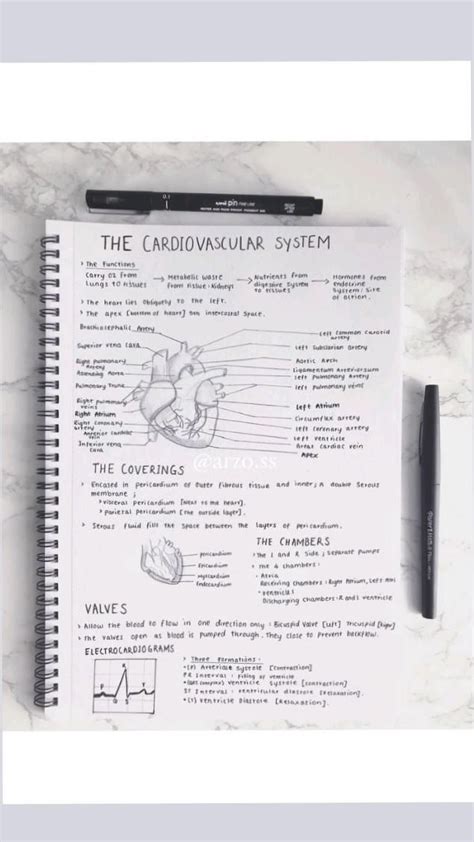 0.1 uni pin FINE LINE
THE CARDIOVASCULAR SYSTEM
> The Functions
Carry O2 from → Metabolic waste → Nutrients from → Hormones from
lungs to tissues from tissue: Kidneys digestive system endocrine
to tissues system: Site
of action.
> The heart lies obliquely to the left.
> The apex [bottom of heart] 5th intercostal Space.
Brachiocephalic Artery
Superior vena cava
Right pulmonary
Artery
Ascending Aorta
Pulmonary Trunk
Right pulmonary
veins
Right Atrium
Right coronary
artery
Anterior cardiac
vein
Inferior vena
cava
Left Common Carotid
artery
Left Subclavian artery
Aortic Arch
Ligamentum Arteriorsum
Left pulmonary Artery
Left pulmonary veins
Left Atrium
Circumflex artery
Left coronary Artery
Left ventricle
Great cardiac vein
Apex
@arzo.ss
THE COVERINGS
> Encased in pericardium of outer fibrous tissue and inner; A double Serous
membrane;
> visceral pericardium [Next to the heart].
> parietal pericardium [the outside layer].
> Serous fluid fills the space between the layers of pericardium.
pericardium
Epicardium
myocardium
Endocardium
THE CHAMBERS
• The L and R Side; Separate pumps
• The 4 chambers:
• Atria
Receiving chambers: Right Atrium, Left Atri
• ventricles
Discharging chambers: R and L ventricle
VALVES
> Allow the blood to flow in one direction only: Bicuspid Valve [Left] Tricuspid [Right]
> The valves open as blood is pumped through. They close to prevent backflow.
ELECTROCARDIOGRAMS
P Q R S T
> Three formations:
• (P) Arteriole Systole [contraction]
PR Interval: filling of ventricle
• (QRS complex) ventricle Systole [contraction]
ST Interval: ventricular diastole [Relaxation].
• (T) ventricle Diastole [Relaxation].